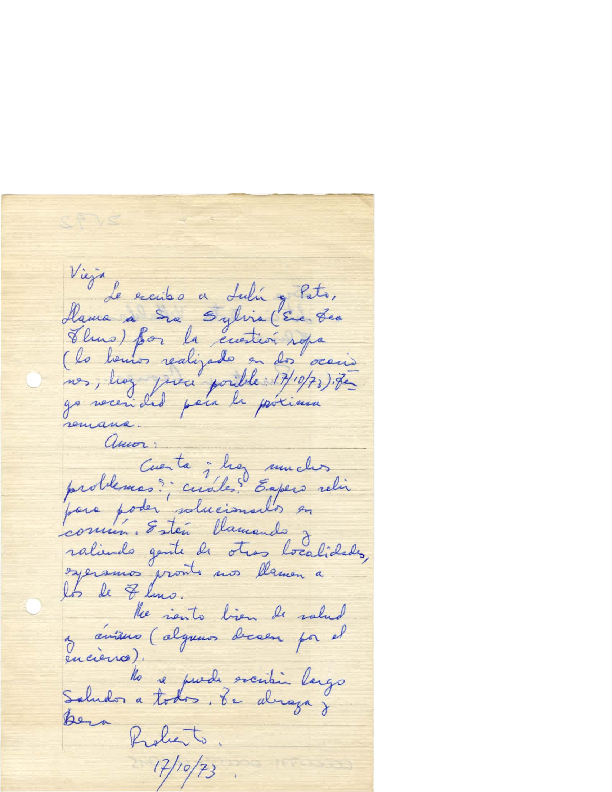 Vieja
Le escribo a Lulú y Pato,
llama a Sra Sylvia (Esc Tca
Thno) por la cuestión ropa
(lo hemos realizado en dos ocasio
nes, hoy parece posible 17/10/73). Ten-
go necesidad para la próxima
semana.
Amor:
Cuenta ¿ hay muchos
problemas?; cuáles? Espero salir
para poder solucionarlos en
común. Están llamando y
saliendo gente de otras localidades,
esperamos pronto nos llamen a
los de Thno.
Me siento bien de salud
y ánimo (algunos decaen por el
encierro).
No se puede escribir largo
Saludos a todos. Te abraza y
besa
Roberto.
17/10/73.